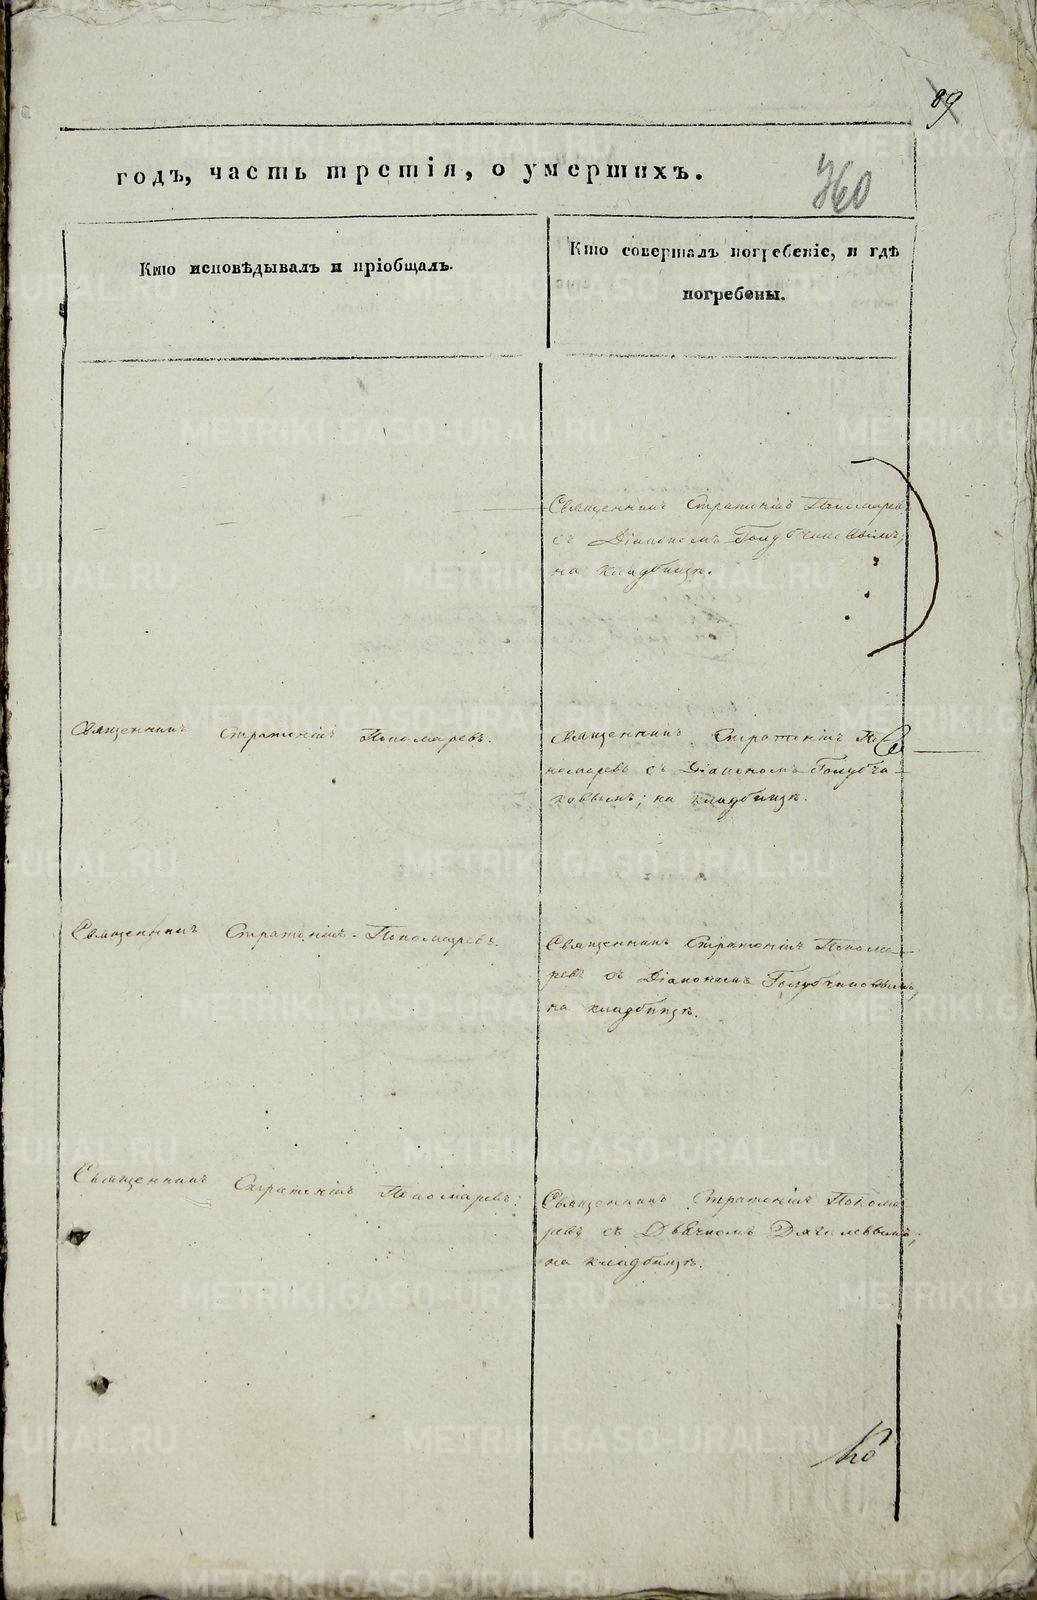 89
годъ, часть третія, о умершихъ.
360
Кто исповѣдывалъ и пріобщалъ.
Кто совершалъ погребеніе, и гдѣ
погребены.
Священникъ Стратоникъ Пономарев
съ Діакономъ Голубчиковымъ;
на кладбищѣ.
Священникъ Стратоникъ Пономаревъ.
Священникъ Стратоникъ По
номаревъ съ Діакономъ Голубчи-
ковымъ; на кладбищѣ.
Священникъ Стратоникъ Пономаревъ.
Священникъ Стратоникъ Понома-
ревъ съ Діакономъ Голубчиковымъ,
на кладбищѣ.
Священникъ Стратоникъ Пономаревъ.
Священникъ Стратоникъ Понома-
ревъ съ Дьячкомъ Дягилевымъ;
на кладбищѣ.
METRIKI.GASO-URAL.RU